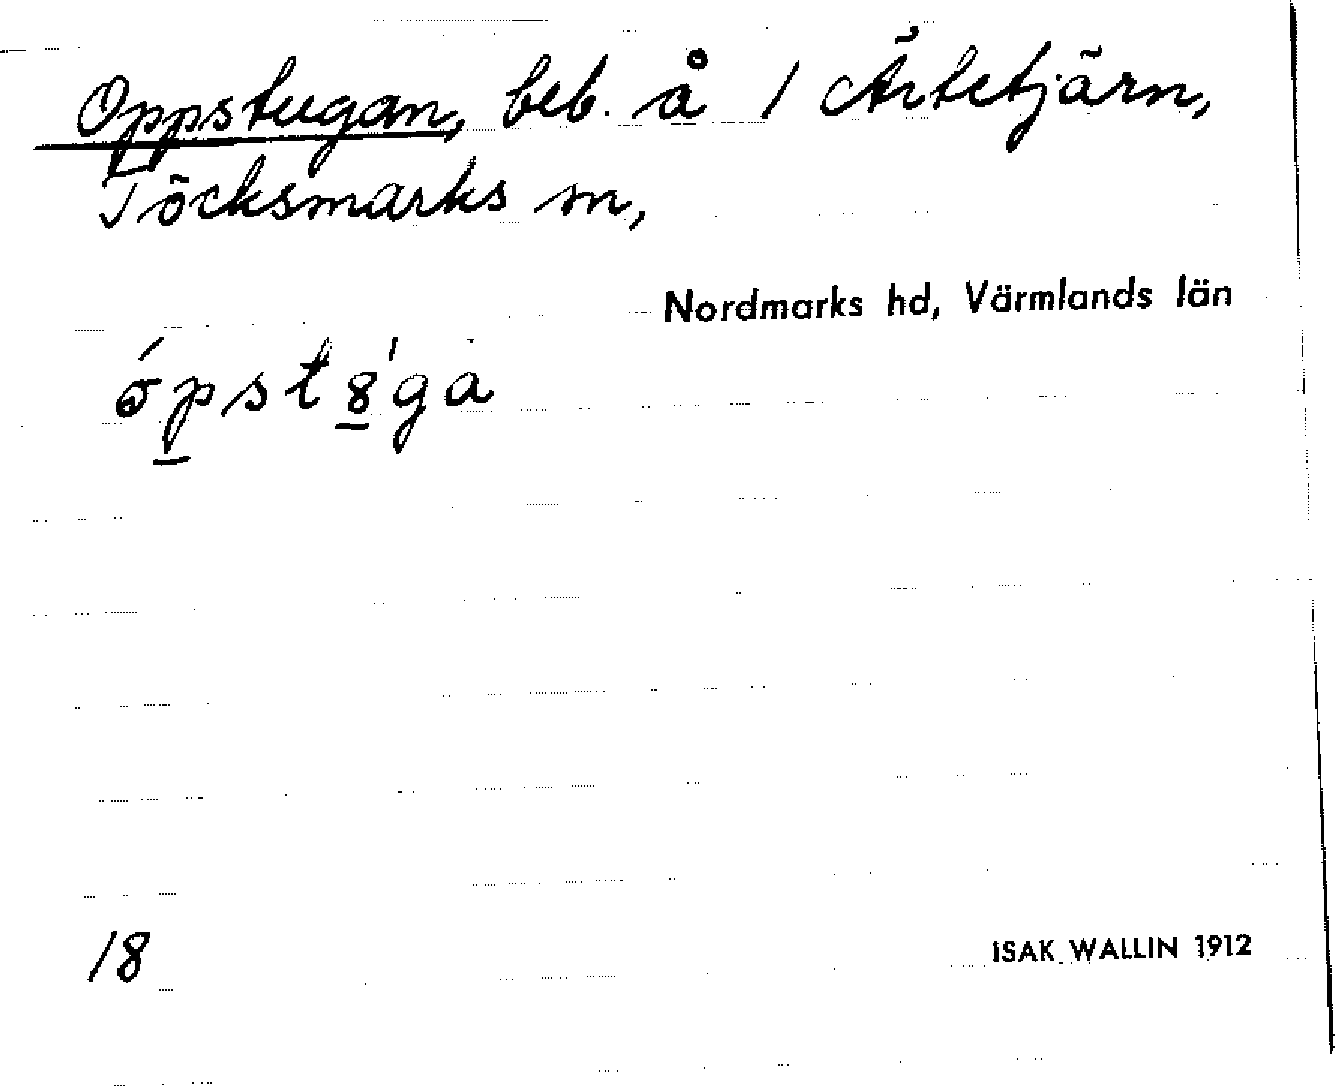 Oppstugan, beb. å 1 Ärtetjärn,
Töcksmarks sn,
Nordmarks hd, Värmlands län
18
ISAK WALLIN 1912